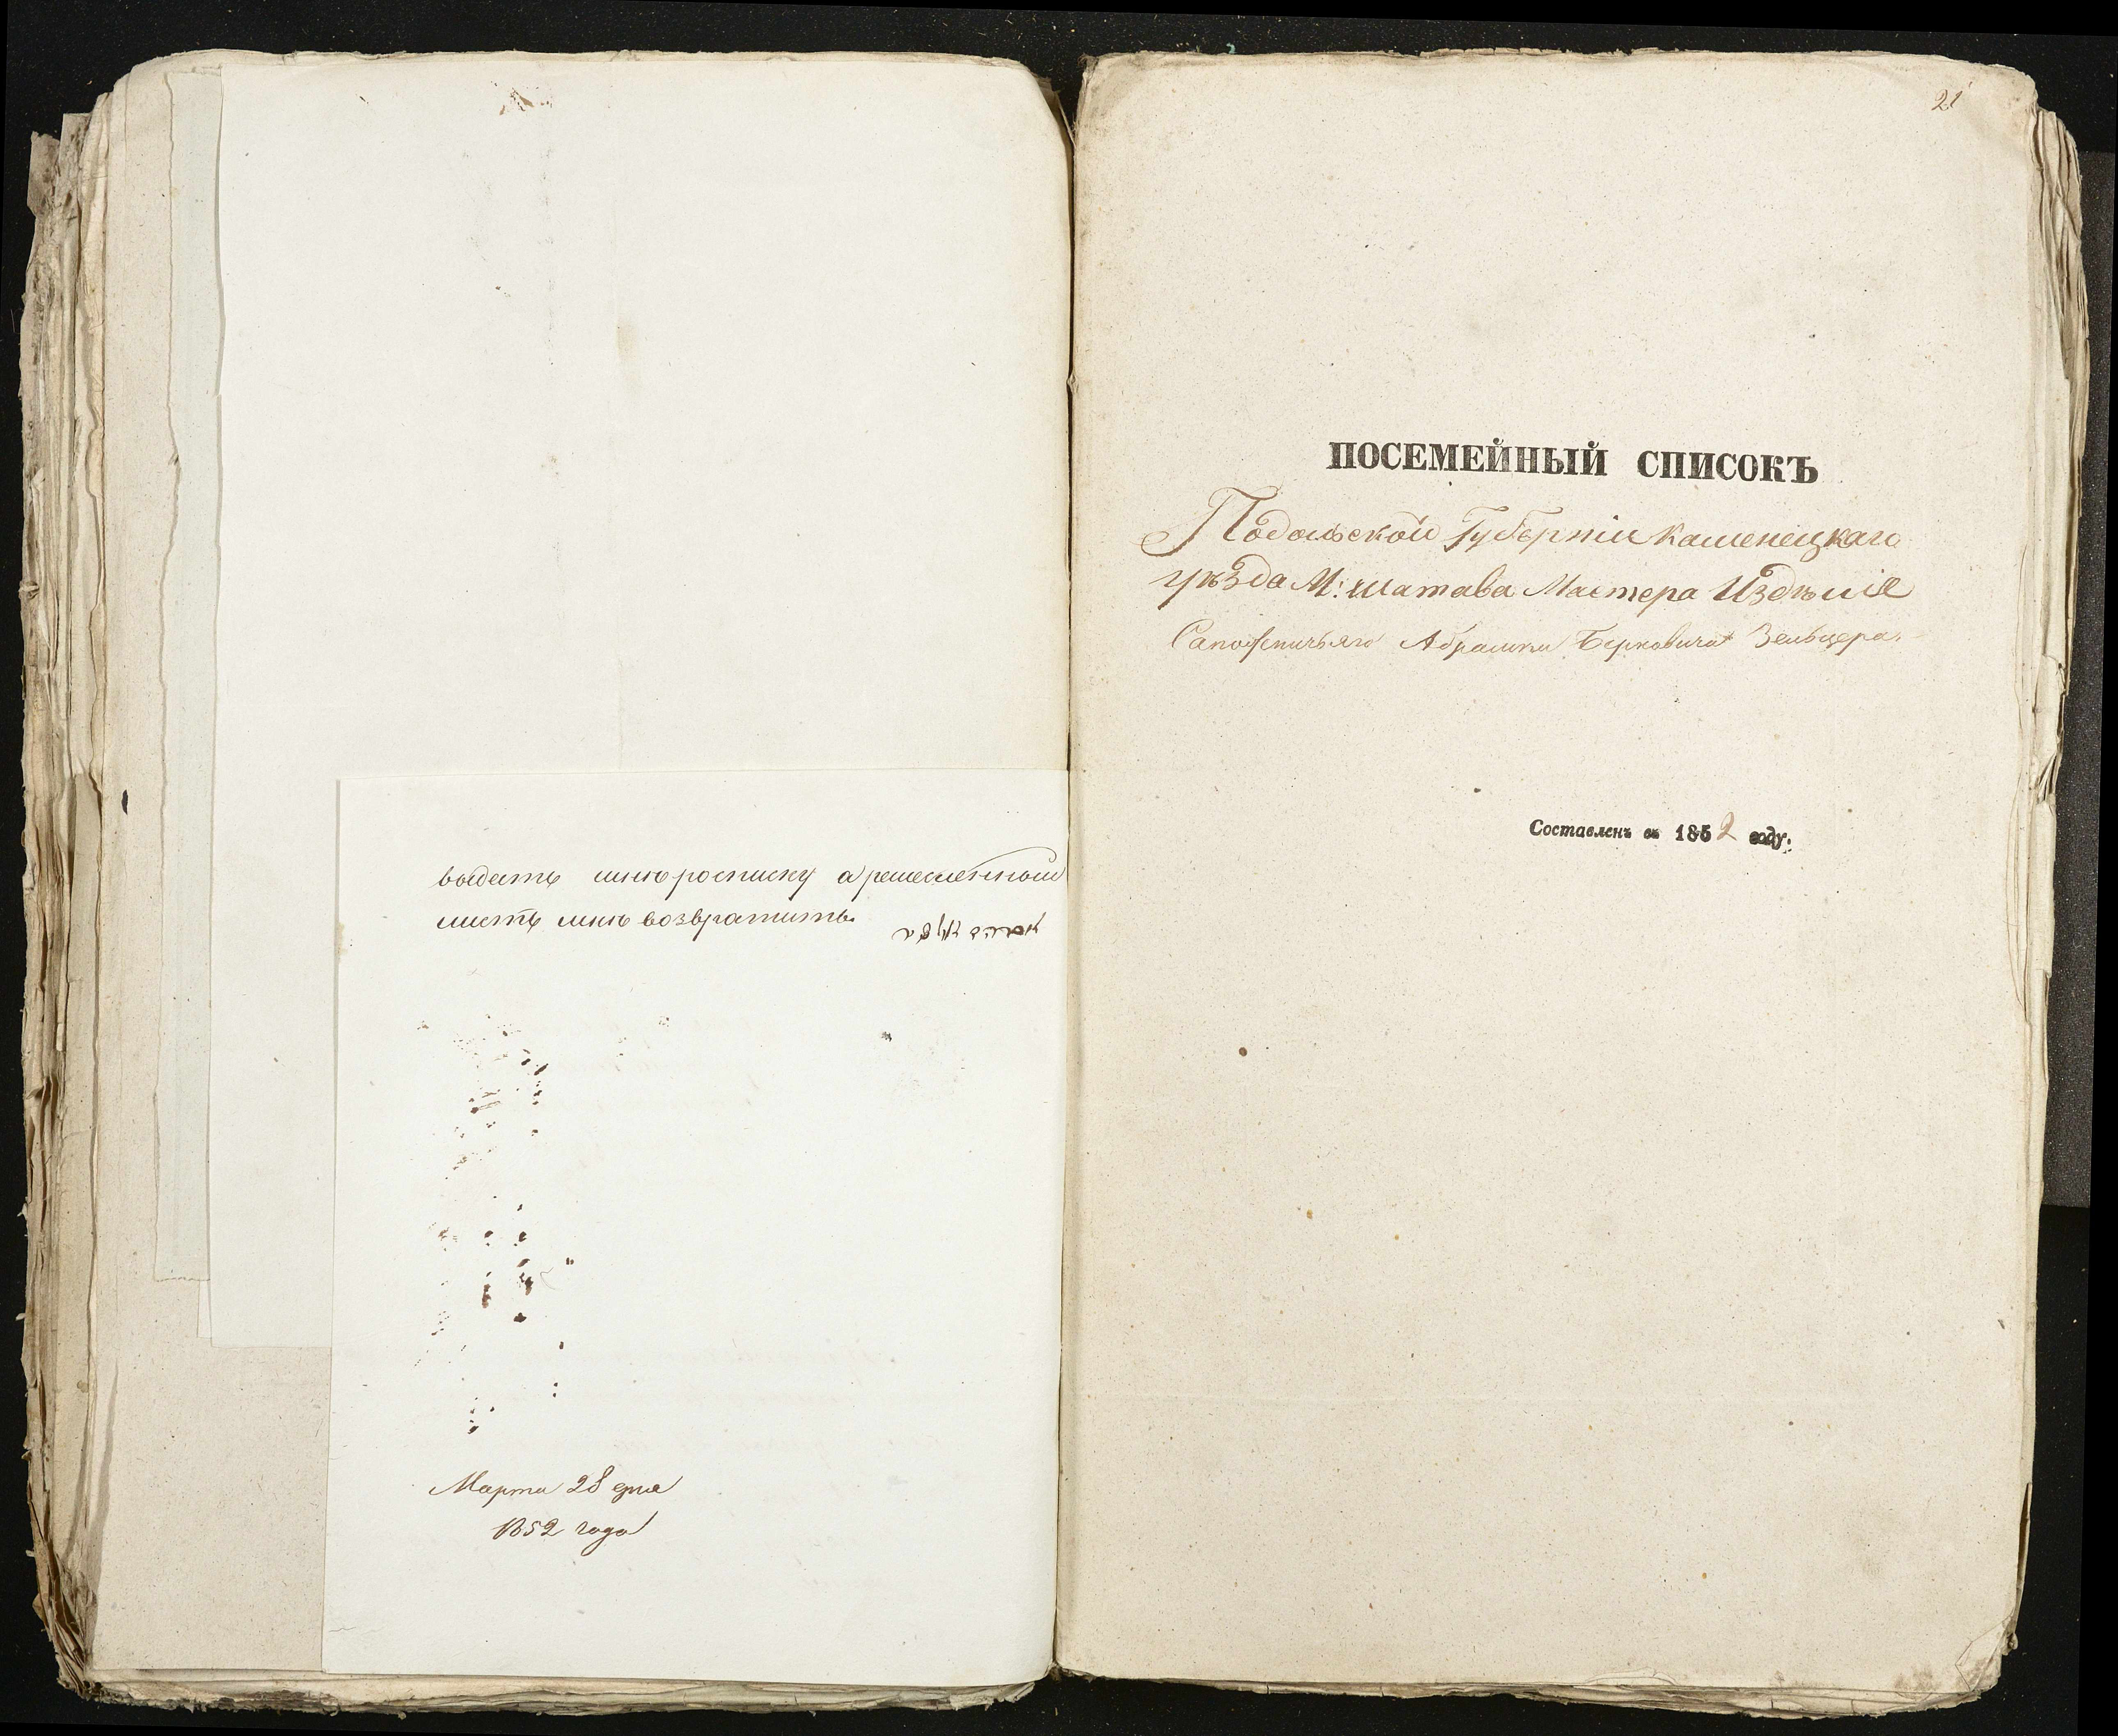 выдать мнѣ росписку а ремесленной
листъ мнѣ возвратить
Марта 28 дня
1852 года
21
ПОСЕМЕЙНЫЙ СПИСОКЪ
Подольской Губерніи Каменецкаго
уѣзда М: Шатава Мастера Издѣлiя
Сапожничьяго Абрашки Берковича Зельцера.
Составленъ въ 1852 году.